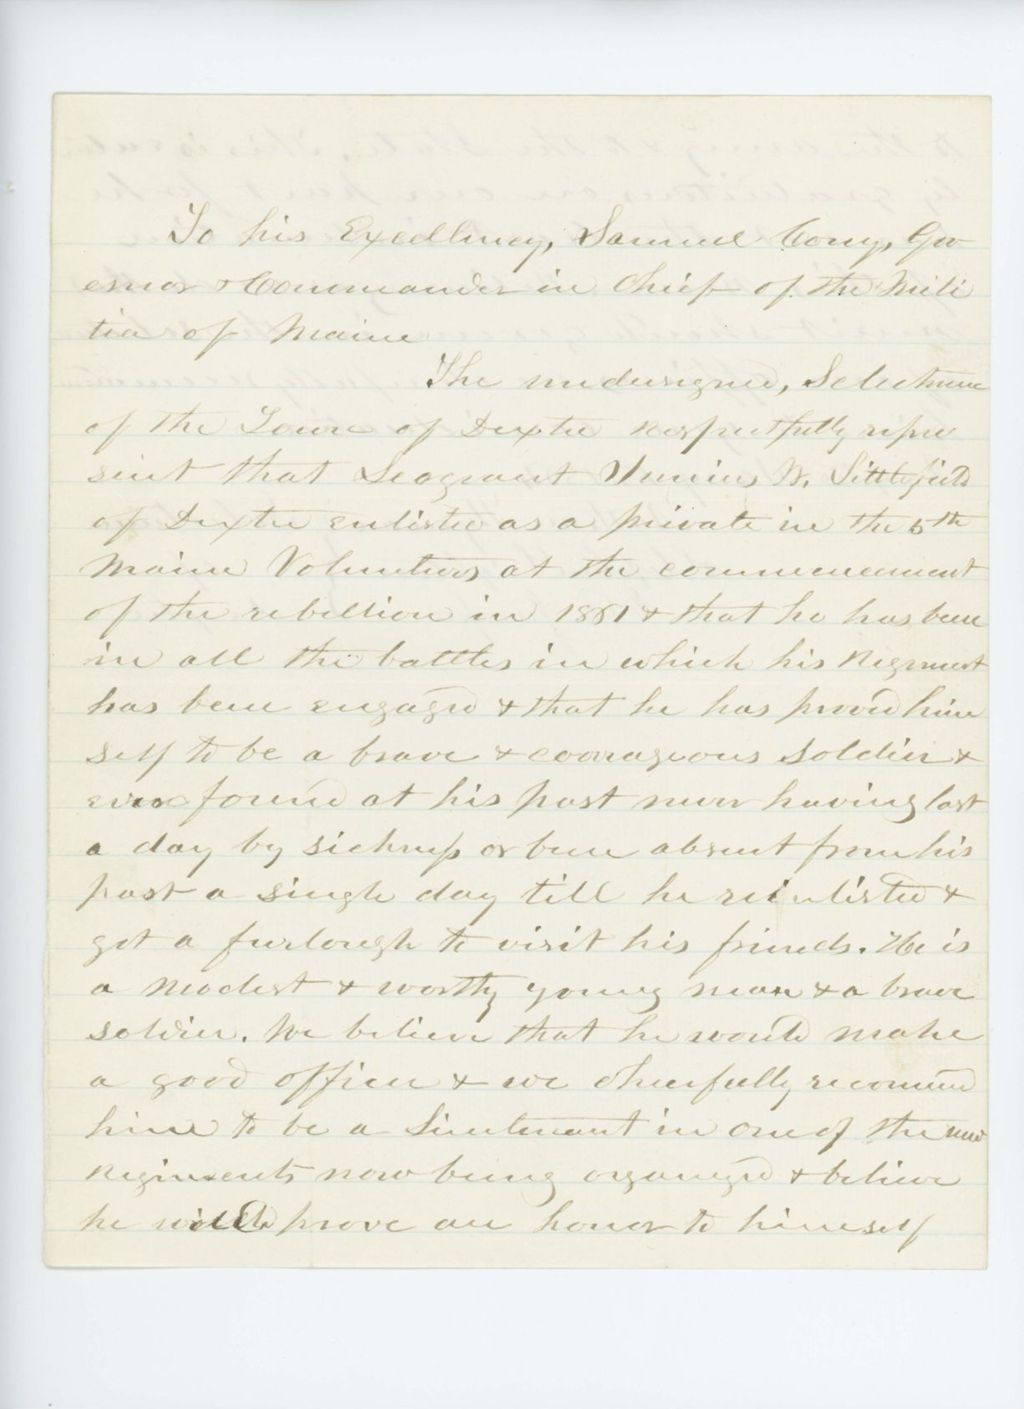 To his Excellency, Samuel Cony, Gov
ernor & Commander in Chief of the Mili
tia of Maine
The undersigned, Selectmen
of the Town of Dexter respectfully repre
sent that Seageant W. Littlefield
of Dexter enlisted as a private in the 6th
Maine Volunteers at the commencement
of the rebellion in 1861 & that he has been
in all the battles in which his Regiment
has been engaged & that he has proved him
self to be a brave & courageous soldier &
ever found at his post never having lost
a day by sickness or been absent from his
post a single day till he reinlisted &
got a furlough to visit his friends. He is
a modest & worthy young man & a brave
soldier. We believe that he would make
a good officer & we cheerfully recommend
him to be a Lieutenant in one of the new
Regiments now being organized & believe
he would prove an honor to himself